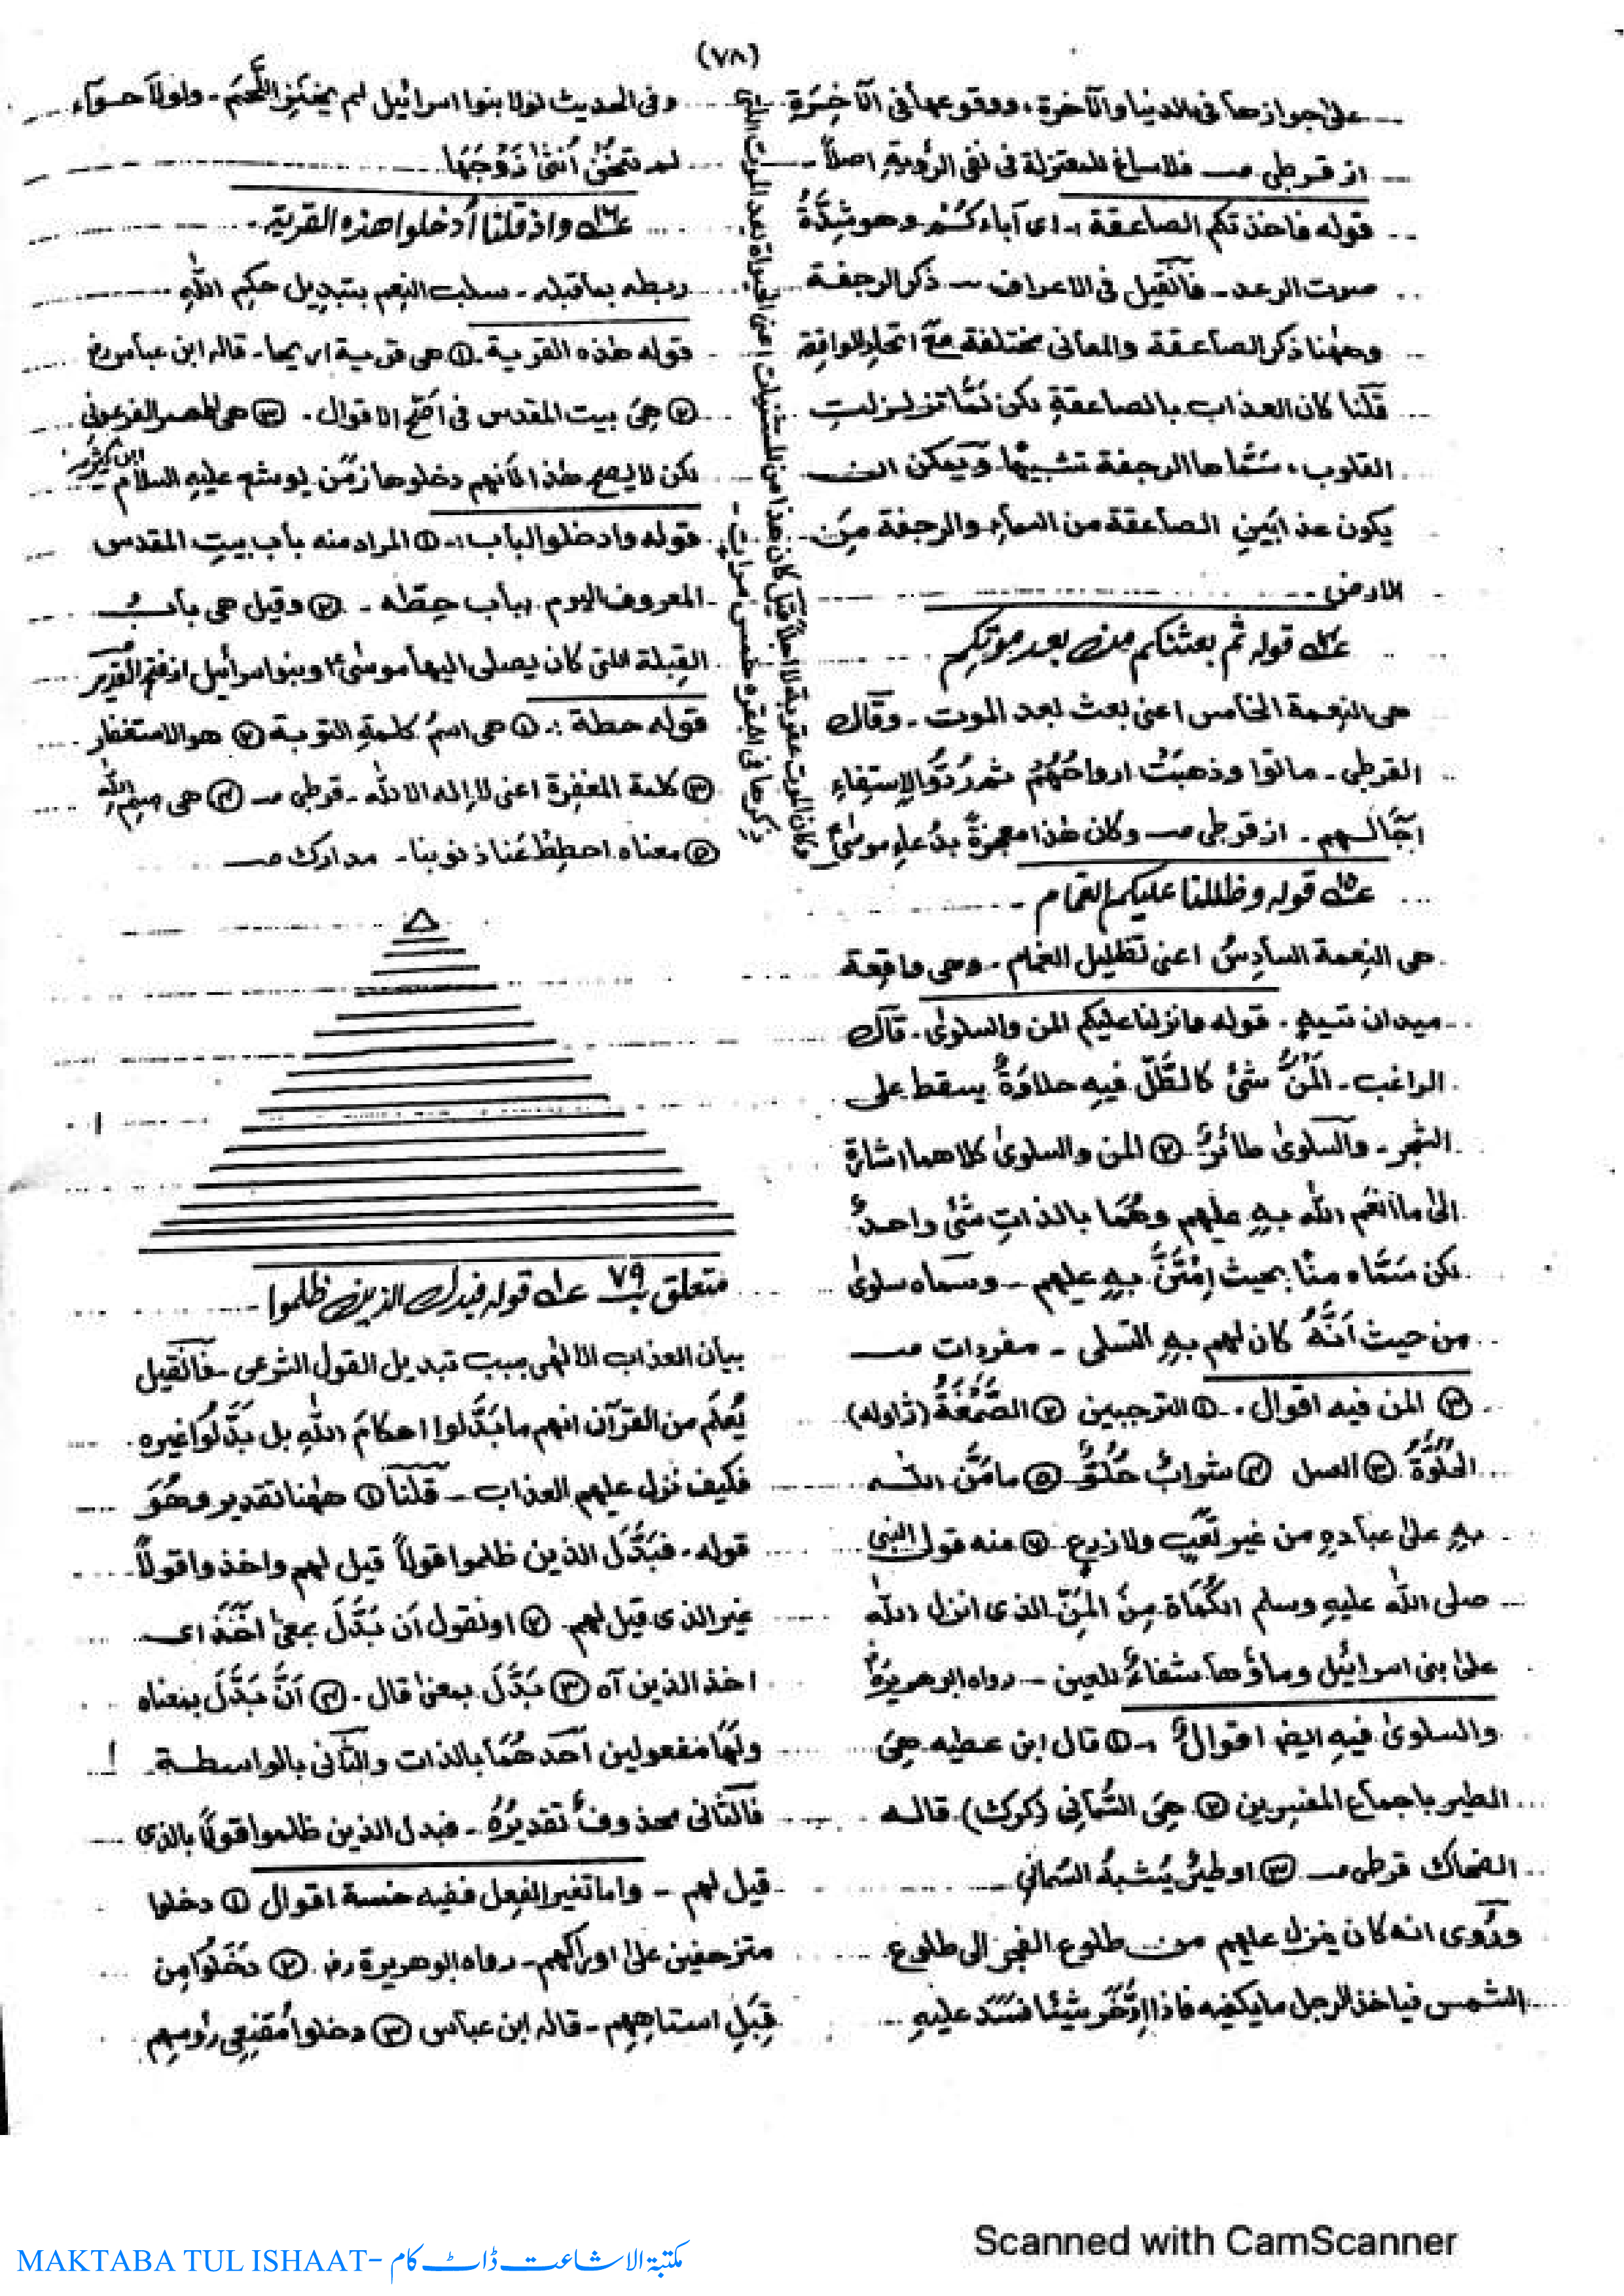 (٧٨)
على جوازها فى الدنيا والآخرة، ووقوعها فى الآخِرَةِ
از قرطبى صـ فلا ساغ للمعتزلة فى نفى الرؤيةِ اصلاً ـ
قوله فاخذتكم الصاعقة :ـ اى آباءكُمْ وهو شِدَّةُ
صوت الرعد ـ فآنقيل فى الاعراف ـ ذكر الرجفة
وههنا ذكر الصاعقة والمعانى مختلفة مَعَ اتحادِ الواقِعةِ
قلنا كان العذاب بالصاعقةِ لكن لَمَّا تزلزلتِ
القلوب، سَمَّاها الرجفة تشبيهًا وَيمكن ان
يكون عذابَينِ الصاعقة من السماءِ والرجفة مِنَ
الارض
عـ١٤ قوله ثم بعثنكم من بعد موتكم
هى النِعمة الخامس اعنى بعث بعد الموت ـ وقال
القرطبى ـ ماتوا وذهبَتْ ارواحُهُمْ ثم رُدُّوا لاِستِفاءِ
آجَالهم ـ از قرطبى صـ وكان هٰذا معجزةً بدُعاءِ موسٰىؑ
عـ١٥ قوله وظللنا عليكم الغمام ـ
هى النِعمة السادِسُ اعنى تظليل الغمام ـ وهى واقِعة
ميدان تيهٍ ۔ قوله وانزلنا عليكم المن والسلوىٰ ـ قال
الراغب ـ المَنُّ شئ كالطَّلّ فيهِ حلاوَةٌ يسقط على
الشجر ـ والسلوىٰ طائرٌ ② المن والسلوىٰ كلاهما اشارة
الىٰ ما انعَم الله بهٖ عليهم وهُمَا بالذاتِ شئ واحدٌ
لكن سَمَّاه منًّا بحيث اِمْتَنَّ بهٖ عليهم ـ وسماه سلوىٰ
من حيث اَنَّهُ كان لهم بهٖ التسلى ـ مفردات صـ
③ المن فيه اقوال ۔ ① الترجبين ② الصَّمْغَةُ (ژاوله)
الحُلْوَةُ ③ العسل ④ شرابٌ حُلْوٌ ⑤ ما مَنَّ الله
بهٖ علىٰ عبادهٖ من غير تَعَبٍ ولا زرعٍ ⑥ منه قول النبى
صلى الله عليهِ وسلم الكَمْأة مِنَ المَنِّ الذى انزل الله
علىٰ بنى اسرائيل وماؤها شفاءٌ للعين ـ رواه ابوهريرةؓ
والسلوىٰ فيهِ ايضا اقوالٌ :ـ ① قال ابن عطيه هِىَ
الطير باجماع المفسِرين ② هِىَ السُّمانى (كرك) قاله
الضحاك قرطبى صـ ③ او طيرٌ يُشبهُ السُمانى
ورُوى انه كان ينزل عليهم من طلوع الفجر الى طلوع
الشمس فياخذ الرجل ما يكفيه فاذا ادَّخَر شيئًا فسَدَ عليهِ
وكان الموت عقوبة لا اجلاً قيل كان هذا من المستثنيات اعنى الحيواة بعد الموت التى
ذكرها فى البقره خمس مرات ـ
وفى الحديث لولا بنوا اسرائيل لم يخنزِ اللَّحمَ ـ ولولا حوآء
لم تخُنْ اُنثٰى زَوْجَهَا
عـ١٦ واذ قلنا اُدخلوا هذه القرية ـ
ربطه بماقبله ـ سلب النِعم بتبديل حكم اللهِ
قوله هٰذه القرية ـ ① هى قرية اريحا ـ قاله ابن عباس رض
② هِىَ بيت المقدس فى اَصَحِّ الاقوال ۔ ③ هى المصر الفرعونى
لكن لا يصح هٰذا لانهم دخلوها زمَن يوشع عليهِ السلام ابن كثير صـ
قوله وادخلوا الباب :ـ ① المراد منه باب بيتِ المقدس
المعروف اليوم بباب حِطّه ـ ② وقيل هى بابُ
القِبلة التى كان يصلى اليها موسٰىؑ وبنو اسرائيل از فتح القدير صـ
قوله حطة :ـ ① هى اسمُ كلمةِ التوبة ② هو الاستغفار
③ كلمة المغفِرة اعنى لا اِله الا الله ـ قرطبى صـ ④ هى بسم الله
⑤ معناه احطِطْ عَنا ذنوبنا ـ مدارك صـ
متعلق بـ ٧٩ عـ١ قوله فبدل الذين ظلموا ـ
بيان العذاب الالٰهى بسبب تبديل القول الشرعى ـ فآنقيل
يُعلَم من القرآن انهم ما بَدَّلوا احكامَ اللهِ بل بَدَّلُوا غيره
فكيف نزل عليهم العذاب ـ قلنا ① ههنا تقدير وهُوَ
قوله ـ فبَدَّلَ الذين ظلموا قولاً قيل لهم واخذوا قولاً
غير الذى قيل لهم ② او نقول اَن بَدَّلَ بمعنٰى اَخَذَ اى
اخذ الذين آه ③ بَدَّلَ بمعنٰى قال ۔ ④ اَنَّ بَدَّلَ بمعناه
ولهَا مفعولين اَحَدهُمَا بالذات والثانى بالواسطة
فالثانى محذوفٌ تقديرُهُ ـ فبدل الذين ظلموا قولاً بالذى
قيل لهم ـ واما تغير الفِعل ففيه خمسة اقوال ① دخلوا
متزحفين علىٰ اوراكهم ـ رواه ابوهريرة رض ② دَخَلُوا مِن
قِبَلِ استاهِهِم ـ قاله ابن عباس ③ دخلوا مُقنِعِى رؤسِهِم
Scanned with CamScanner
MAKTABA TUL ISHAAT- مكتبة الاشاعت ڈاٹ كام